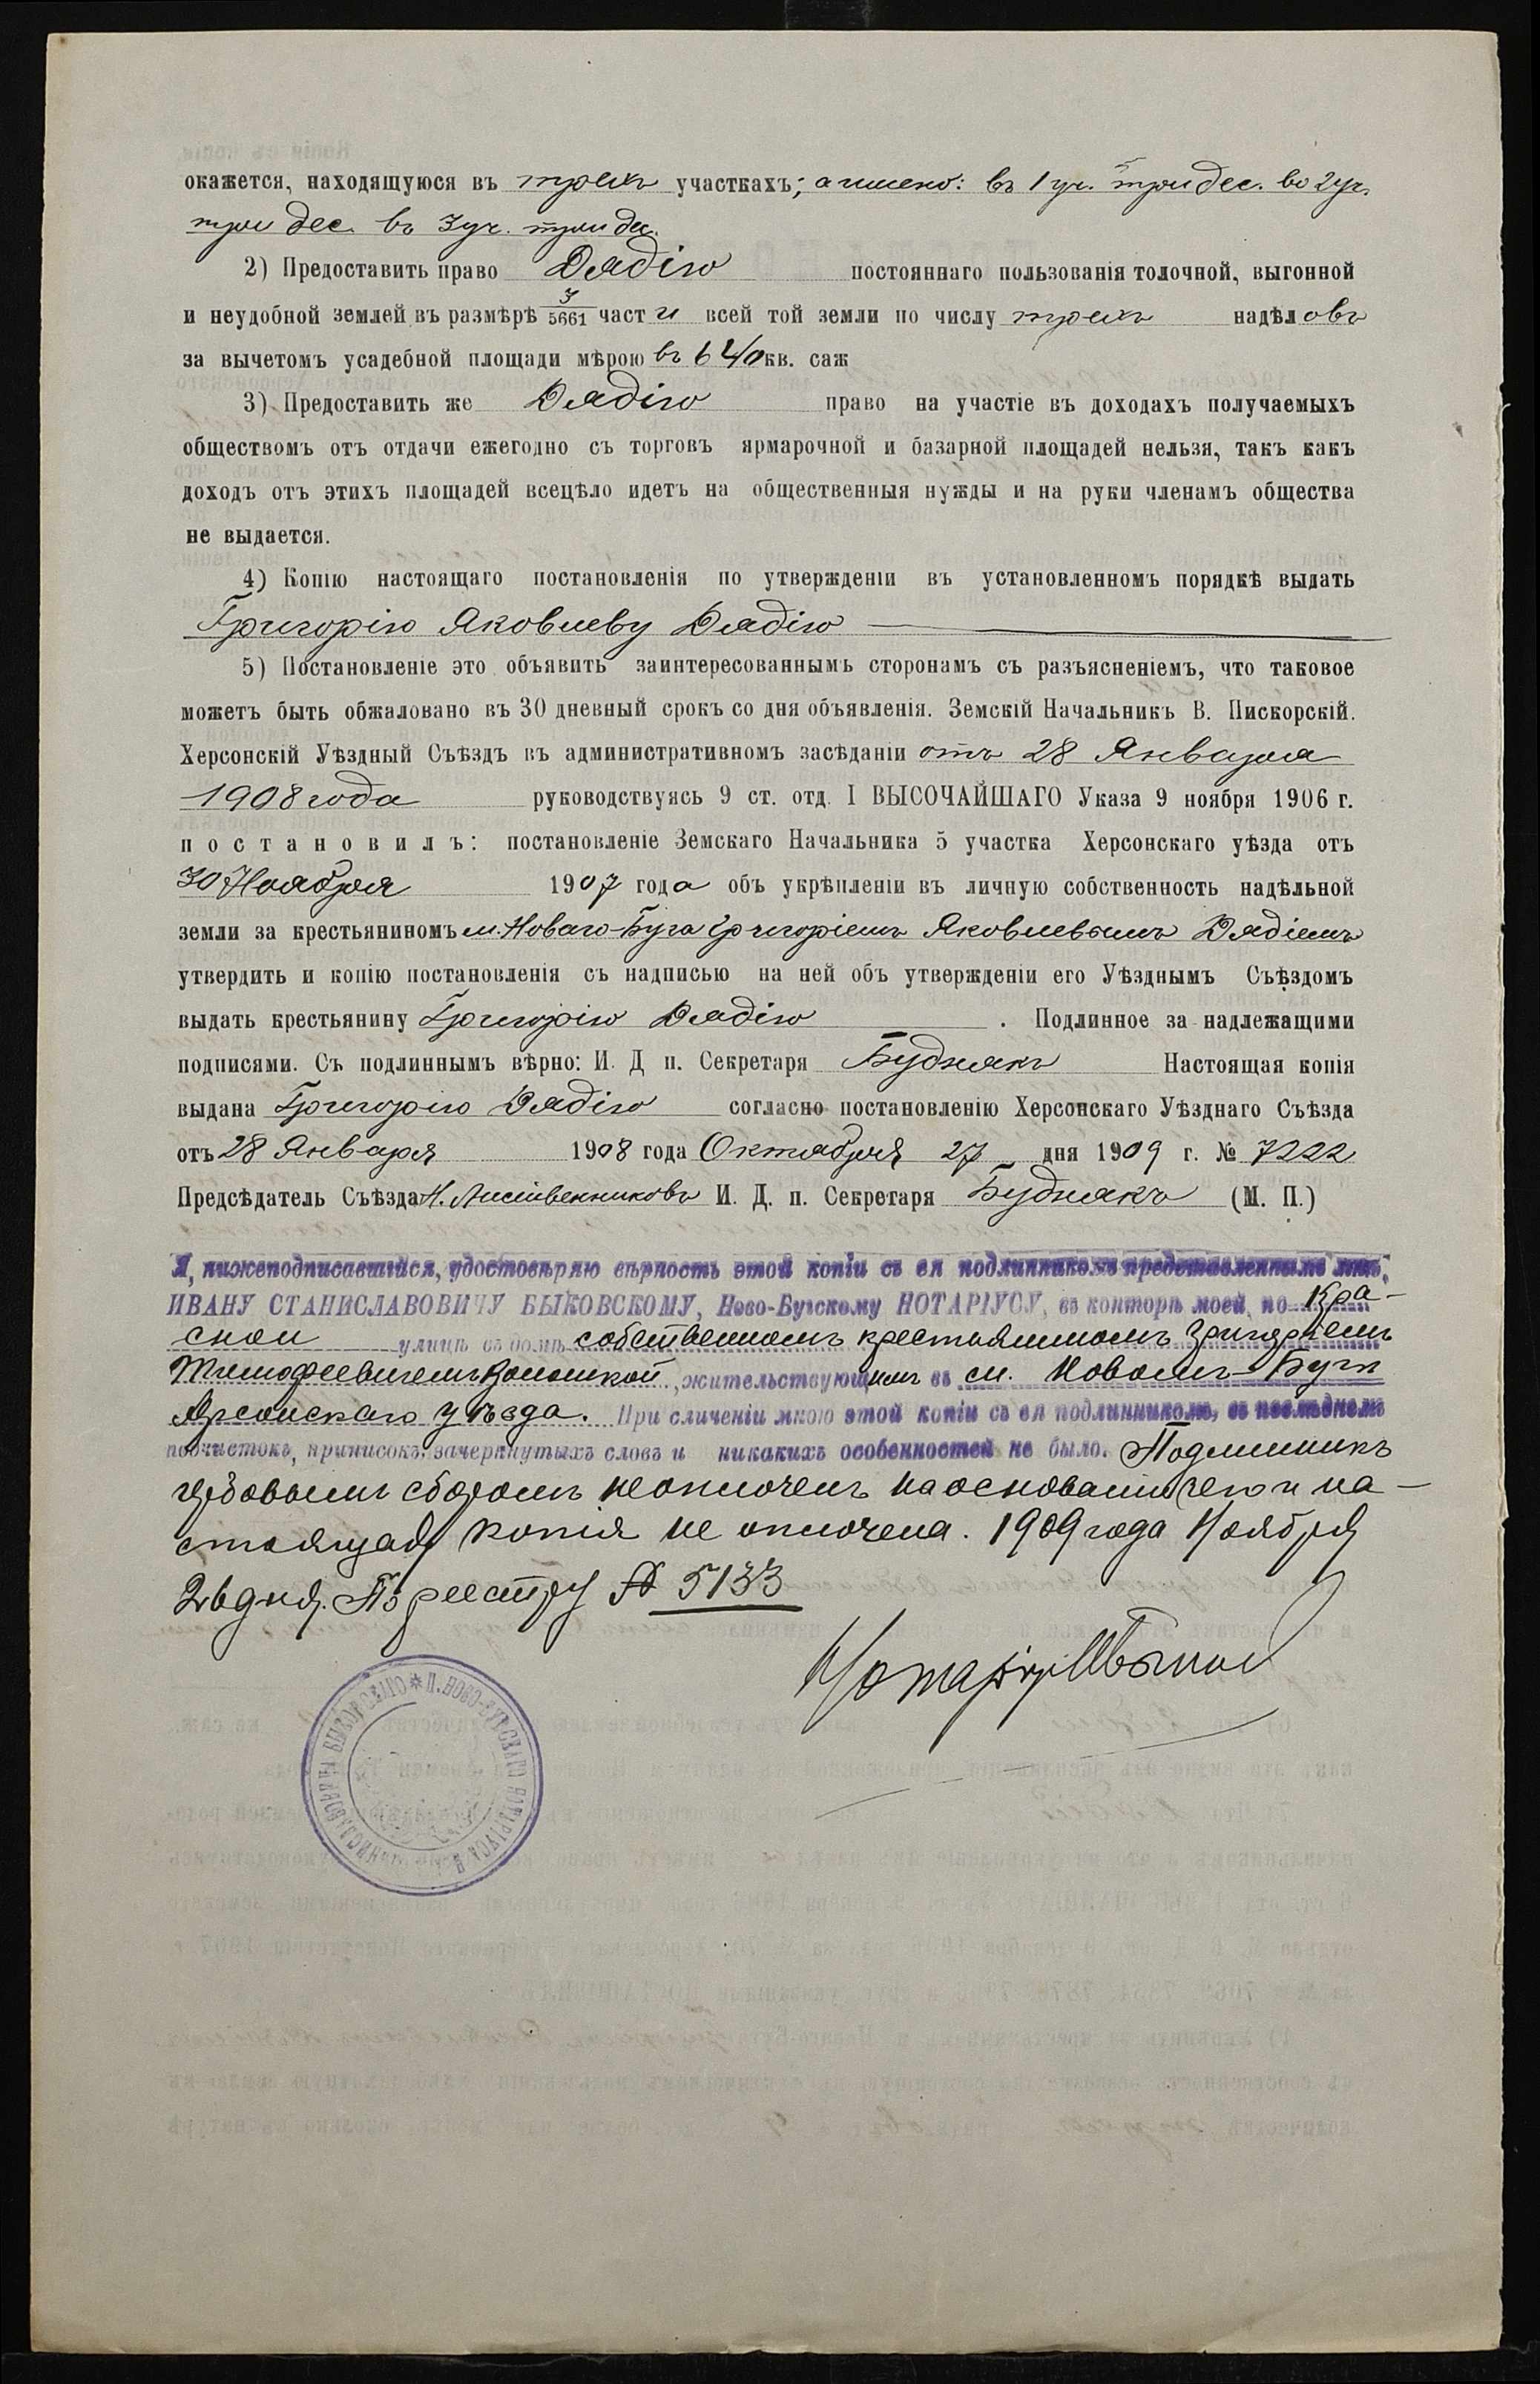 окажется, находящуюся въ трехъ участкахъ; а имено: въ 1 уч. три дес. во 2 уч.
три дес. въ 3 уч. три дес.
2) Предоставить право Дядію постояннаго пользованія толочной, выгонной
и неудобной землей въ размѣрѣ 3/5661 части всей той земли по числу трехъ надѣловъ
за вычетомъ усадебной площади мѣрою въ 640 кв. саж
3) Предоставить же Дядію право на участіе въ доходахъ получаемыхъ
обществомъ отъ отдачи ежегодно съ торговъ ярмарочной и базарной площадей нельзя, такъ какъ
доходъ отъ этихъ площадей всецѣло идетъ на общественныя нужды и на руки членамъ общества
не выдается.
4) Копію настоящаго постановленія по утвержденіи въ установленномъ порядкѣ выдать
Григорію Яковлеву Дядію
5) Постановленіе это объявить заинтересованнымъ сторонамъ съ разъясненіемъ, что таковое
можетъ быть обжаловано въ 30 дневный срокъ со дня объявленія. Земскій Начальникъ В. Пискорскій.
Херсонскій Уѣздный Съѣздъ въ административномъ засѣданіи отъ 28 Января
1908 года руководствуясь 9 ст. отд. I ВЫСОЧАЙШАГО Указа 9 ноября 1906 г.
постановилъ: постановленіе Земскаго Начальника 5 участка Херсонскаго уѣзда отъ
30 Ноября 1907 года объ укрѣпленіи въ личную собственность надѣльной
земли за крестьяниномъ м. Новаго-Буга Григоріемъ Яковлевымъ Дядіемъ
утвердить и копію постановленія съ надписью на ней объ утвержденіи его Уѣзднымъ Съѣздомъ
выдать крестьянину Григорію Дядію. Подлинное за надлежащими
подписями. Съ подлиннымъ вѣрно: И. Д п. Секретаря Буднякъ Настоящая копія
выдана Григорію Дядію согласно постановленію Херсонскаго Уѣзднаго Съѣзда
отъ 28 Января 1908 года Октября 27 дня 1909 г. № 7222
Предсѣдатель Съѣзда Н. Лиственниковъ И. Д. п. Секретаря Буднякъ (М. П.)
Я, нижеподписавшійся, удостовѣряю вѣрность этой копіи съ ея подлинникомъ представленнымъ мнѣ,
ИВАНУ СТАНИСЛАВОВИЧУ БЫКОВСКОМУ, Ново-Бугскому НОТАРІУСУ, въ конторѣ моей, по Кра-
сной улицѣ въ домѣ собственномъ крестьяниномъ Григоріемъ
Тимофеевичемъ, жительствующимъ въ м. Новомъ-Бугѣ
Херсонскаго уѣзда. При сличеніи мною этой копіи съ ея подлинникомъ, въ послѣднемъ
подчистокъ, приписокъ, зачеркнутыхъ словъ и никакихъ особенностей не было. Подлинникъ
гербовымъ сборомъ неоплоченъ на основаніи чего и на-
стоящая копія не оплочена. 1909 года Ноября
26 дня. По реестру № 5133
Нотаріусъ
И. НОВО-БУГСКАГО НОТАРІУСА И. СТАНИСЛАВОВИЧА БЫКОВСКАГО